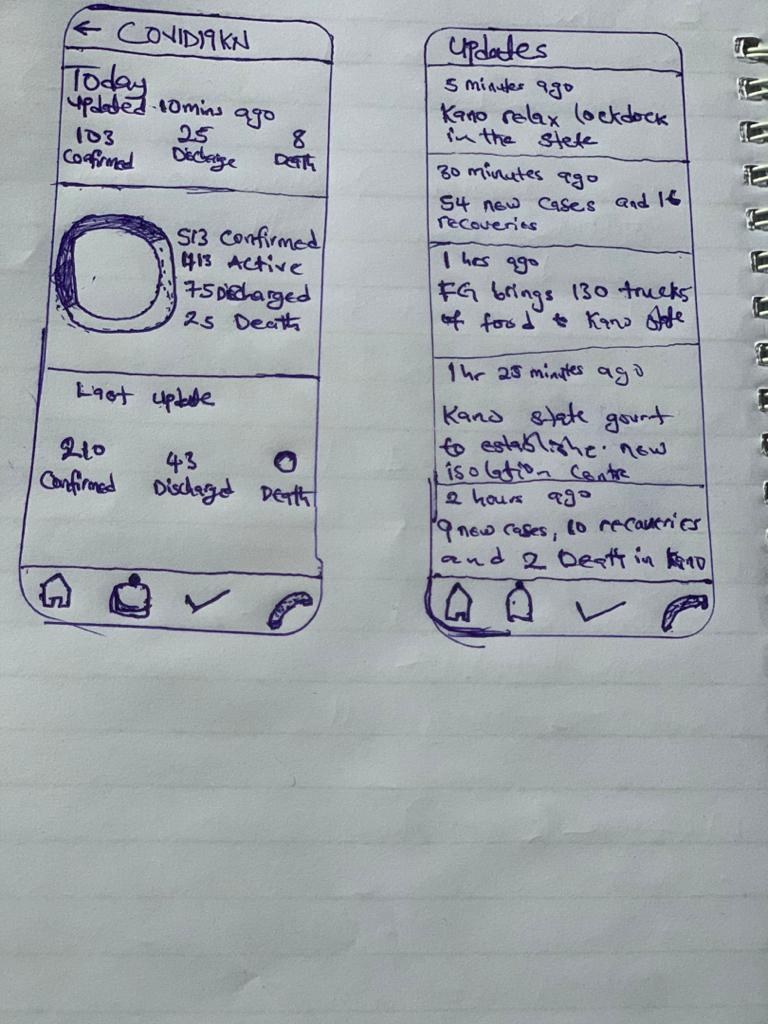 ← COVID19KN
Today
updated 10mins ago
103 25 8
Confirmed Discharge Death
513 Confirmed
413 Active
75 Discharged
25 Death
Last update
210 43 0
Confirmed Discharged Death
Updates
5 minutes ago
Kano relax lockdock
in the state
30 minutes ago
54 new cases and 16
recoveries
1 hrs ago
FG brings 130 trucks
of food to Kano state
1 hr 25 minutes ago
Kano state govnt
to establishe new
isolation Centre
2 hours ago
9 new cases, 10 recoveries
and 2 Death in Kano